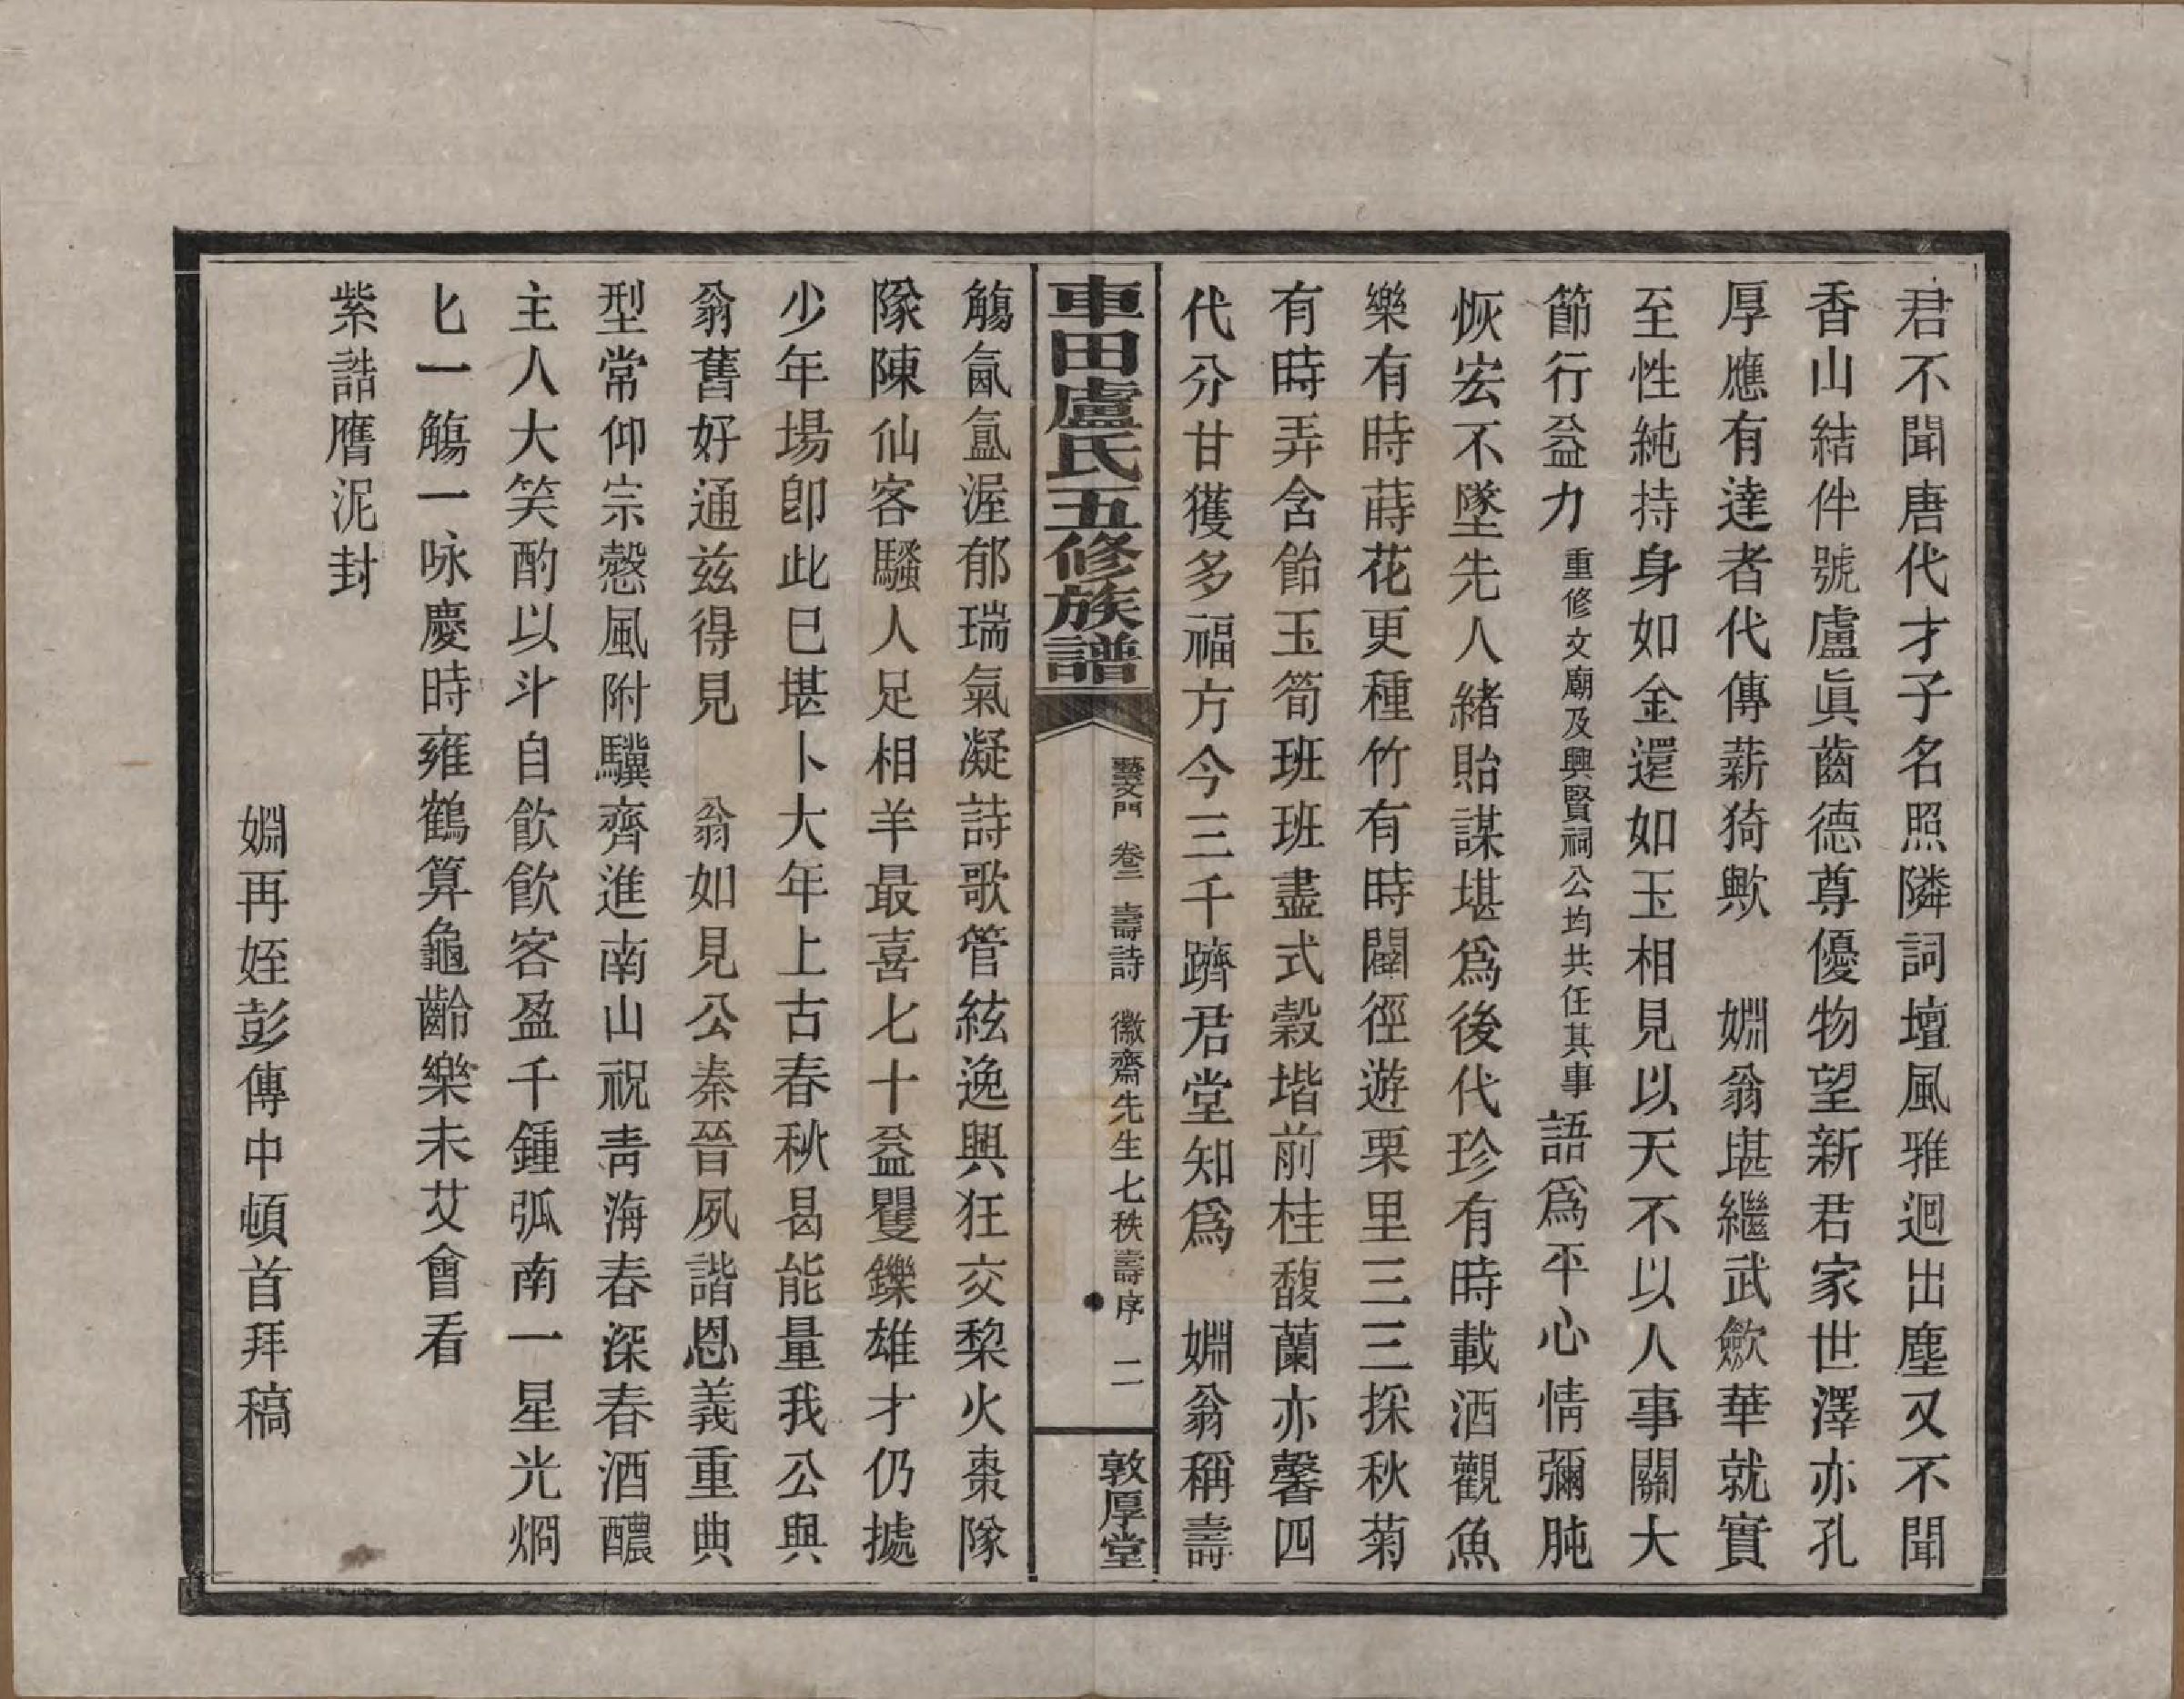 君不聞唐代才子名照隣詞壇風雅迥出塵又不聞
香山結伴號盧眞齒德尊優物望新君家世澤亦孔
厚應有達者代傳薪猗歟　姻翁堪繼武歛華就實
至性純持身如金還如玉相見以天不以人事關大
節行益力重修文廟及興賢祠公均共任其事語爲平心情彌肫
恢宏不墜先人緒貽謀堪爲後代珍有時載酒觀魚
樂有時蒔花更種竹有時闢徑遊栗里三三採秋菊
有時弄含飴玉筍班班盡式穀堦前桂馥蘭亦馨四
代分甘獲多福方今三千躋君堂知爲　姻翁稱壽
車田盧氏五修族譜
藝文門　卷二　壽詩　徽齋先生七秩壽序　二
敦厚堂
觴氤氳渥郁瑞氣凝詩歌管絃逸興狂交棃火棗隊
隊陳仙客騷人足相羊最喜七十益矍鑠雄才仍據
少年場卽此已堪卜大年上古春秋曷能量我公與
翁舊好通兹得見　翁如見公秦晉夙諧恩義重典
型常仰宗慤風附驥齊進南山祝靑海春深春酒醲
主人大笑酌以斗自飮飮客盈千鍾弧南一星光烱
七一觴一咏慶時雍鶴算龜齡樂未艾會看
紫誥膺泥封
姻再姪彭傳中頓首拜稿